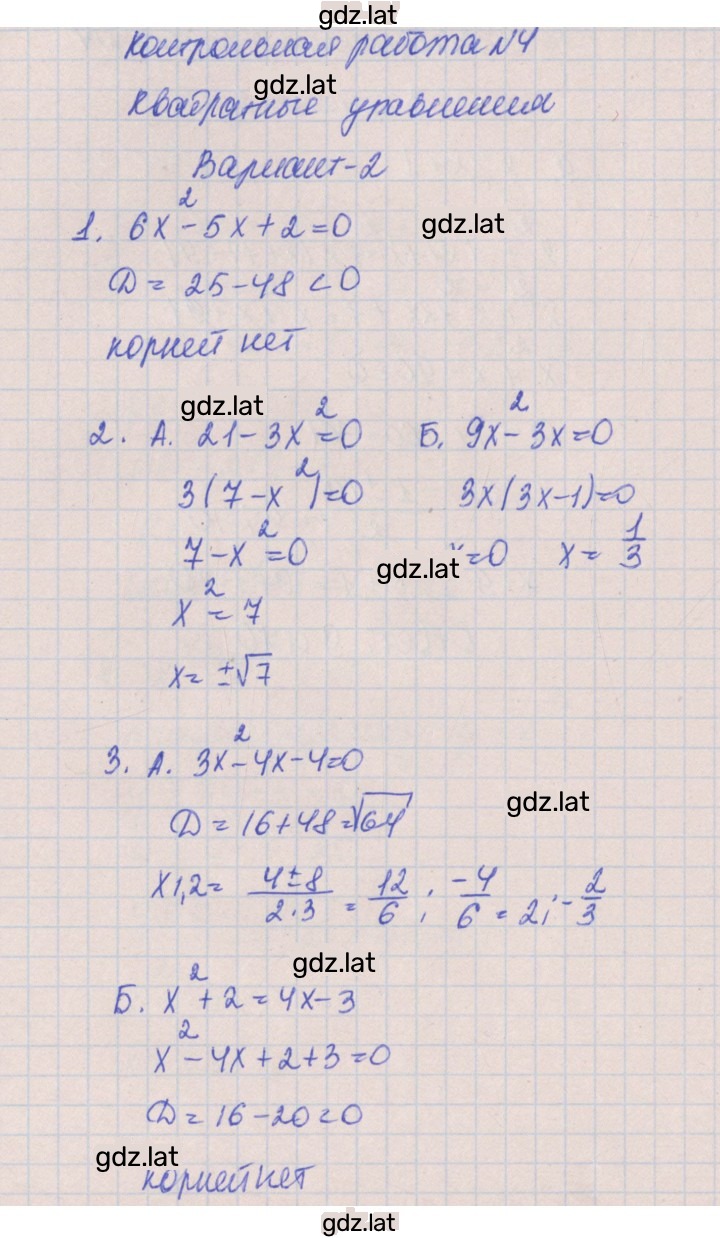 gdz.lat
Контрольная работа №4
gdz.lat
Квадратные уравнения
Вариант-2
1. 6x² - 5x + 2 = 0
gdz.lat
D = 25 - 48 < 0
корней нет
gdz.lat
2. А. 21 - 3x² = 0
3(7 - x²) = 0
7 - x² = 0
x² = 7
x = ±√7
Б. 9x² - 3x = 0
3x(3x - 1) = 0
= 0 x = 1/3
gdz.lat
3. А. 3x² - 4x - 4 = 0
gdz.lat
D = 16 + 48 = √64
x1,2 = (4 ± 8)/(2 · 3) = 12/6 ; -4/6 = 2; -2/3
gdz.lat
Б. x² + 2 = 4x - 3
x² - 4x + 2 + 3 = 0
D = 16 - 20 < 0
gdz.lat
корней нет
gdz.lat